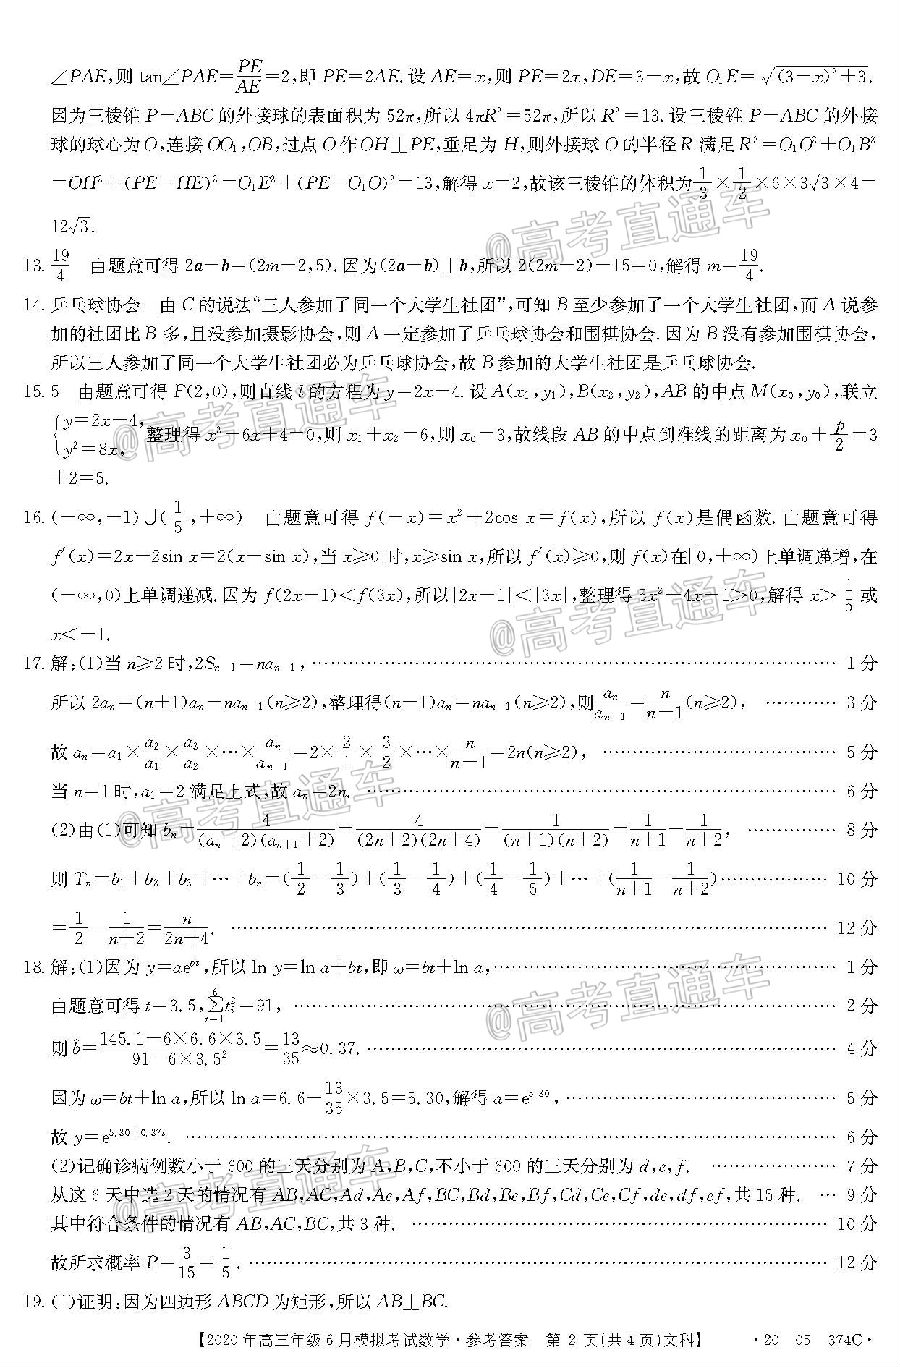 ∠PAE,则 tan∠PAE=PE/AE=2,即 PE=2AE.设 AE=x,则 PE=2x,DE=3-x,故 O₁E=√((3-x)²+3).
因为三棱锥 P-ABC 的外接球的表面积为 52π,所以 4πR²=52π,所以 R²=13.设三棱锥 P-ABC 的外接
球的球心为 O,连接 OO₁,OB,过点 O 作 OH⊥PE,垂足为 H,则外接球 O 的半径 R 满足 R²=O₁O²+O₁B²
=OH²+(PE-HE)²=O₁E²+(PE-O₁O)²=13,解得 x=2,故该三棱锥的体积为 1/3×1/2×6×3√3×4=
12√3.
13. 19/4 由题意可得 2a-b=(2m-2,5).因为(2a-b)⊥b,所以 2(2m-2)-15=0,解得 m=19/4.
14. 乒乓球协会 由 C 的说法“三人参加了同一个大学生社团”,可知 B 至少参加了一个大学生社团,而 A 说参
加的社团比 B 多,且没参加摄影协会,则 A 一定参加了乒乓球协会和围棋协会.因为 B 没有参加围棋协会,
所以三人参加了同一个大学生社团必为乒乓球协会,故 B 参加的大学生社团是乒乓球协会.
15. 5 由题意可得 F(2,0),则直线 l 的方程为 y=2x-4.设 A(x₁,y₁),B(x₂,y₂),AB 的中点 M(x₀,y₀),联立
{y=2x-4, y²=8x, 整理得 x²-6x+4=0,则 x₁+x₂=6,则 x₀=3,故线段 AB 的中点到准线的距离为 x₀+p/2=3
+2=5.
16. (-∞,-1)∪(1/5,+∞) 由题意可得 f(-x)=x²+2cos x=f(x),所以 f(x)是偶函数.由题意可得
f′(x)=2x-2sin x=2(x-sin x),当 x≥0 时,x≥sin x,所以 f′(x)≥0,则 f(x)在[0,+∞)上单调递增,在
(-∞,0)上单调递减.因为 f(2x-1)<f(3x),所以|2x-1|<|3x|,整理得 5x²+4x-1>0,解得 x>1/5 或
x<-1.
17. 解:(1)当 n≥2 时,2Sₙ₋₁=naₙ₋₁,…… 1 分
所以 2aₙ=(n+1)aₙ-naₙ₋₁(n≥2),整理得(n-1)aₙ=naₙ₋₁(n≥2),则 aₙ/aₙ₋₁=n/(n-1)(n≥2), …… 3 分
故 aₙ=a₁×a₂/a₁×a₃/a₂×…×aₙ/aₙ₋₁=2×2/1×3/2×…×n/(n-1)=2n(n≥2), …… 5 分
当 n=1 时,a₁=2 满足上式,故 aₙ=2n. …… 6 分
(2)由(1)可知 bₙ=4/((aₙ+2)(aₙ₊₁+2))=4/((2n+2)(2n+4))=1/((n+1)(n+2))=1/(n+1)-1/(n+2), …… 8 分
则 Tₙ=b₁+b₂+b₃+…+bₙ=(1/2-1/3)+(1/3-1/4)+(1/4-1/5)+…+(1/(n+1)-1/(n+2)) …… 10 分
=1/2-1/(n+2)=n/(2n+4). …… 12 分
18. 解:(1)因为 y=ae^(bt),所以 ln y=ln a+bt,即 ω=bt+ln a, …… 1 分
由题意可得 t̄=3.5,∑(i=1→6)tᵢ²=91, …… 2 分
则 b̂=(145.1-6×6.6×3.5)/(91-6×3.5²)=13/35≈0.37. …… 4 分
因为 ω=bt+ln a,所以 ln a=6.6-13/35×3.5=5.30,解得 a=e^5.30, …… 5 分
故 y=e^(5.30+0.37t). …… 6 分
(2)记确诊病例数小于 800 的三天分别为 A,B,C,不小于 800 的三天分别为 d,e,f. …… 7 分
从这 6 天中选 2 天的情况有 AB,AC,Ad,Ae,Af,BC,Bd,Be,Bf,Cd,Ce,Cf,de,df,ef,共 15 种. … 9 分
其中符合条件的情况有 AB,AC,BC,共 3 种. …… 10 分
故所求概率 P=3/15=1/5. …… 12 分
19. (1)证明:因为四边形 ABCD 为矩形,所以 AB⊥BC.
【2020 年高三年级 6 月模拟考试数学·参考答案 第 2 页(共 4 页)文科】 ·20-05-374C·
@高考直通车
@高考直通车
@高考直通车
@高考直通车
@高考直通车
@高考直通车